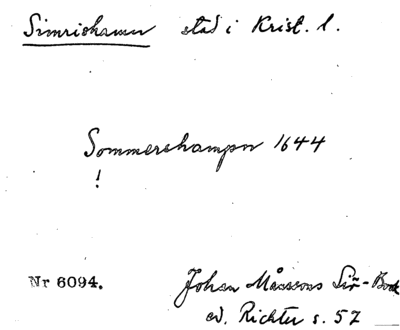 Simrishamn stad i Krist. l.
Sommershampn 1644
!
Nr 6094.
Johan Månssons Siö-Book
ed. Richter s. 57